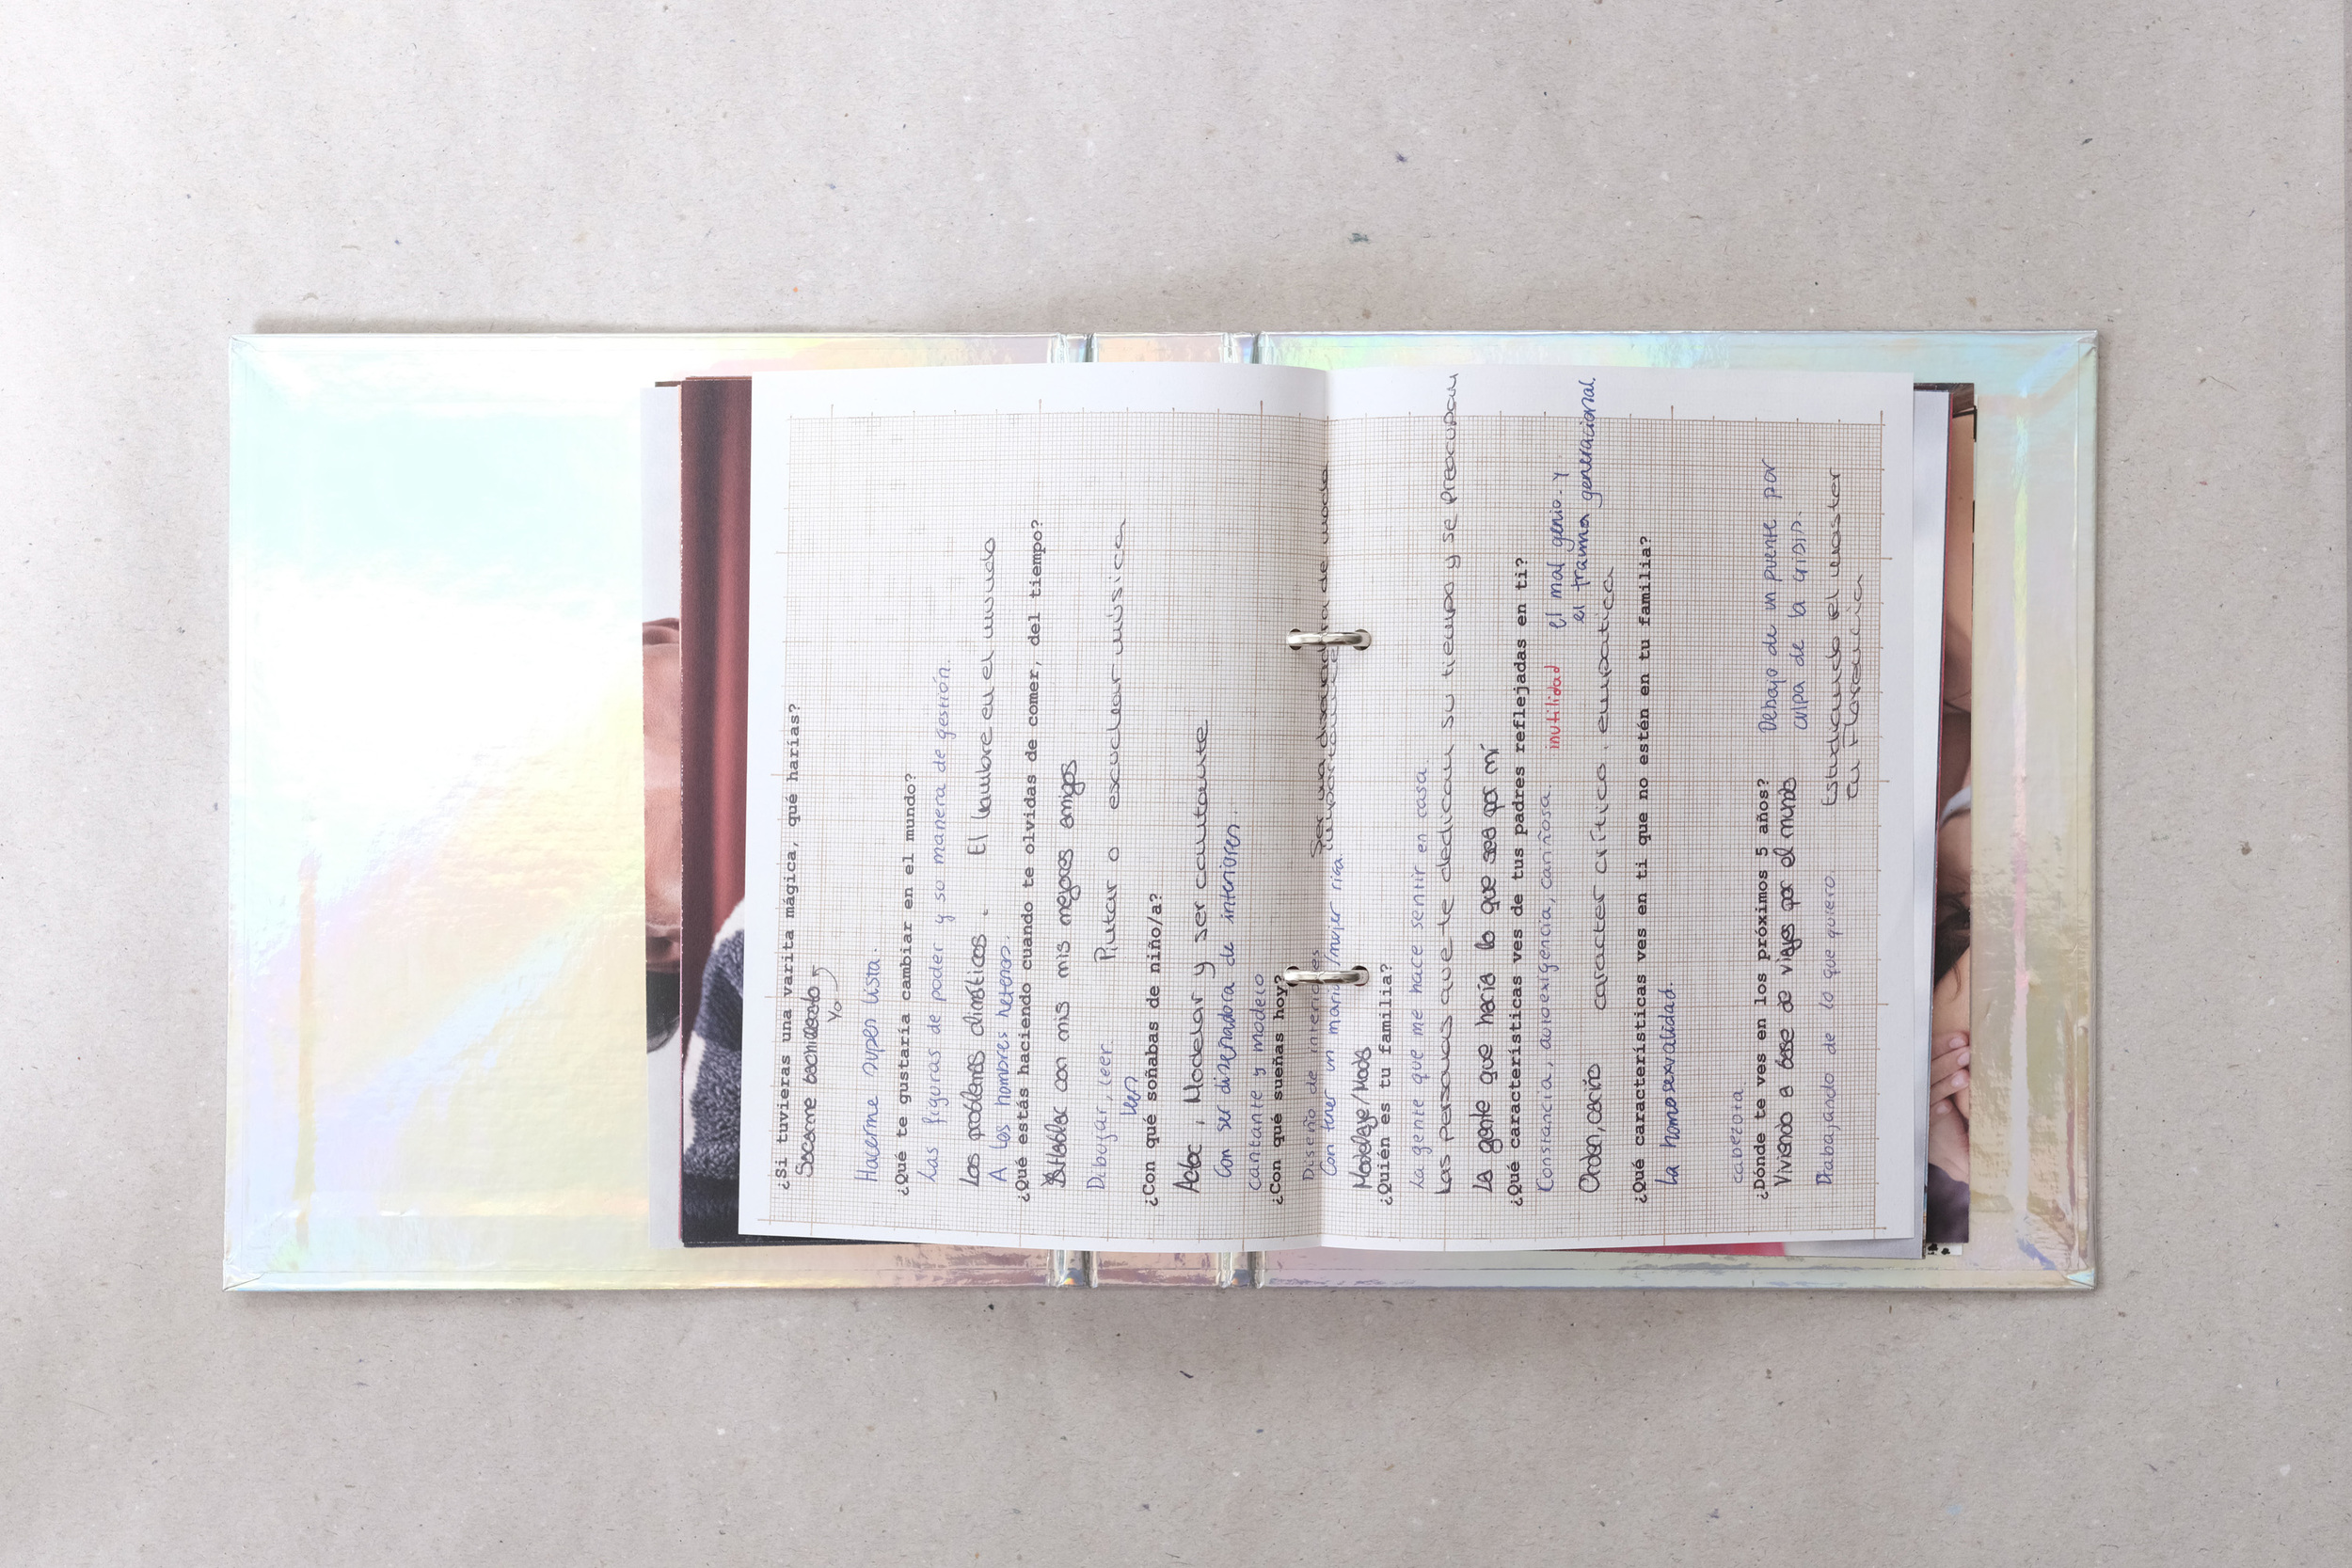 ¿Si tuvieras una varita mágica, qué harías?
Sacarme bachillerato
Yo
Hacerme super lista.
¿Qué te gustaría cambiar en el mundo?
Las figuras de poder y su manera de gestión.
Los problemas climáticos. El hambre en el mundo
A los hombres heteros.
¿Qué estás haciendo cuando te olvidas de comer, del tiempo?
Hablar con mis mis mejores amigos
Dibujar, leer. Pintar o escuchar música
leer
¿Con qué soñabas de niño/a?
Actor, Modelar y ser cantante
Con ser diseñadora de interiores.
cantante y modelo
¿Con qué sueñas hoy?
Diseño de interiores Ser una diseñadora de moda
Con tener un marido/mujer rica. importante
Modelaje/Moda
¿Quién es tu familia?
La gente que me hace sentir en casa.
Las personas que te dedican su tiempo y se preocupan
La gente que haría lo que sea por mí
¿Qué características ves de tus padres reflejadas en ti?
Constancia, autoexigencia, cariñosa. inutilidad el mal genio. y
el trauma generacional.
Orden, cariño caracter crítico, empatica
¿Qué características ves en ti que no estén en tu familia?
La homosexualidad.
cabezota
¿Dónde te ves en los próximos 5 años? Debajo de un puente por
Viviendo a base de viajes por el mundo culpa de la crisis.
Trabajando de lo que quiero. Estudiando el master
en Florencia